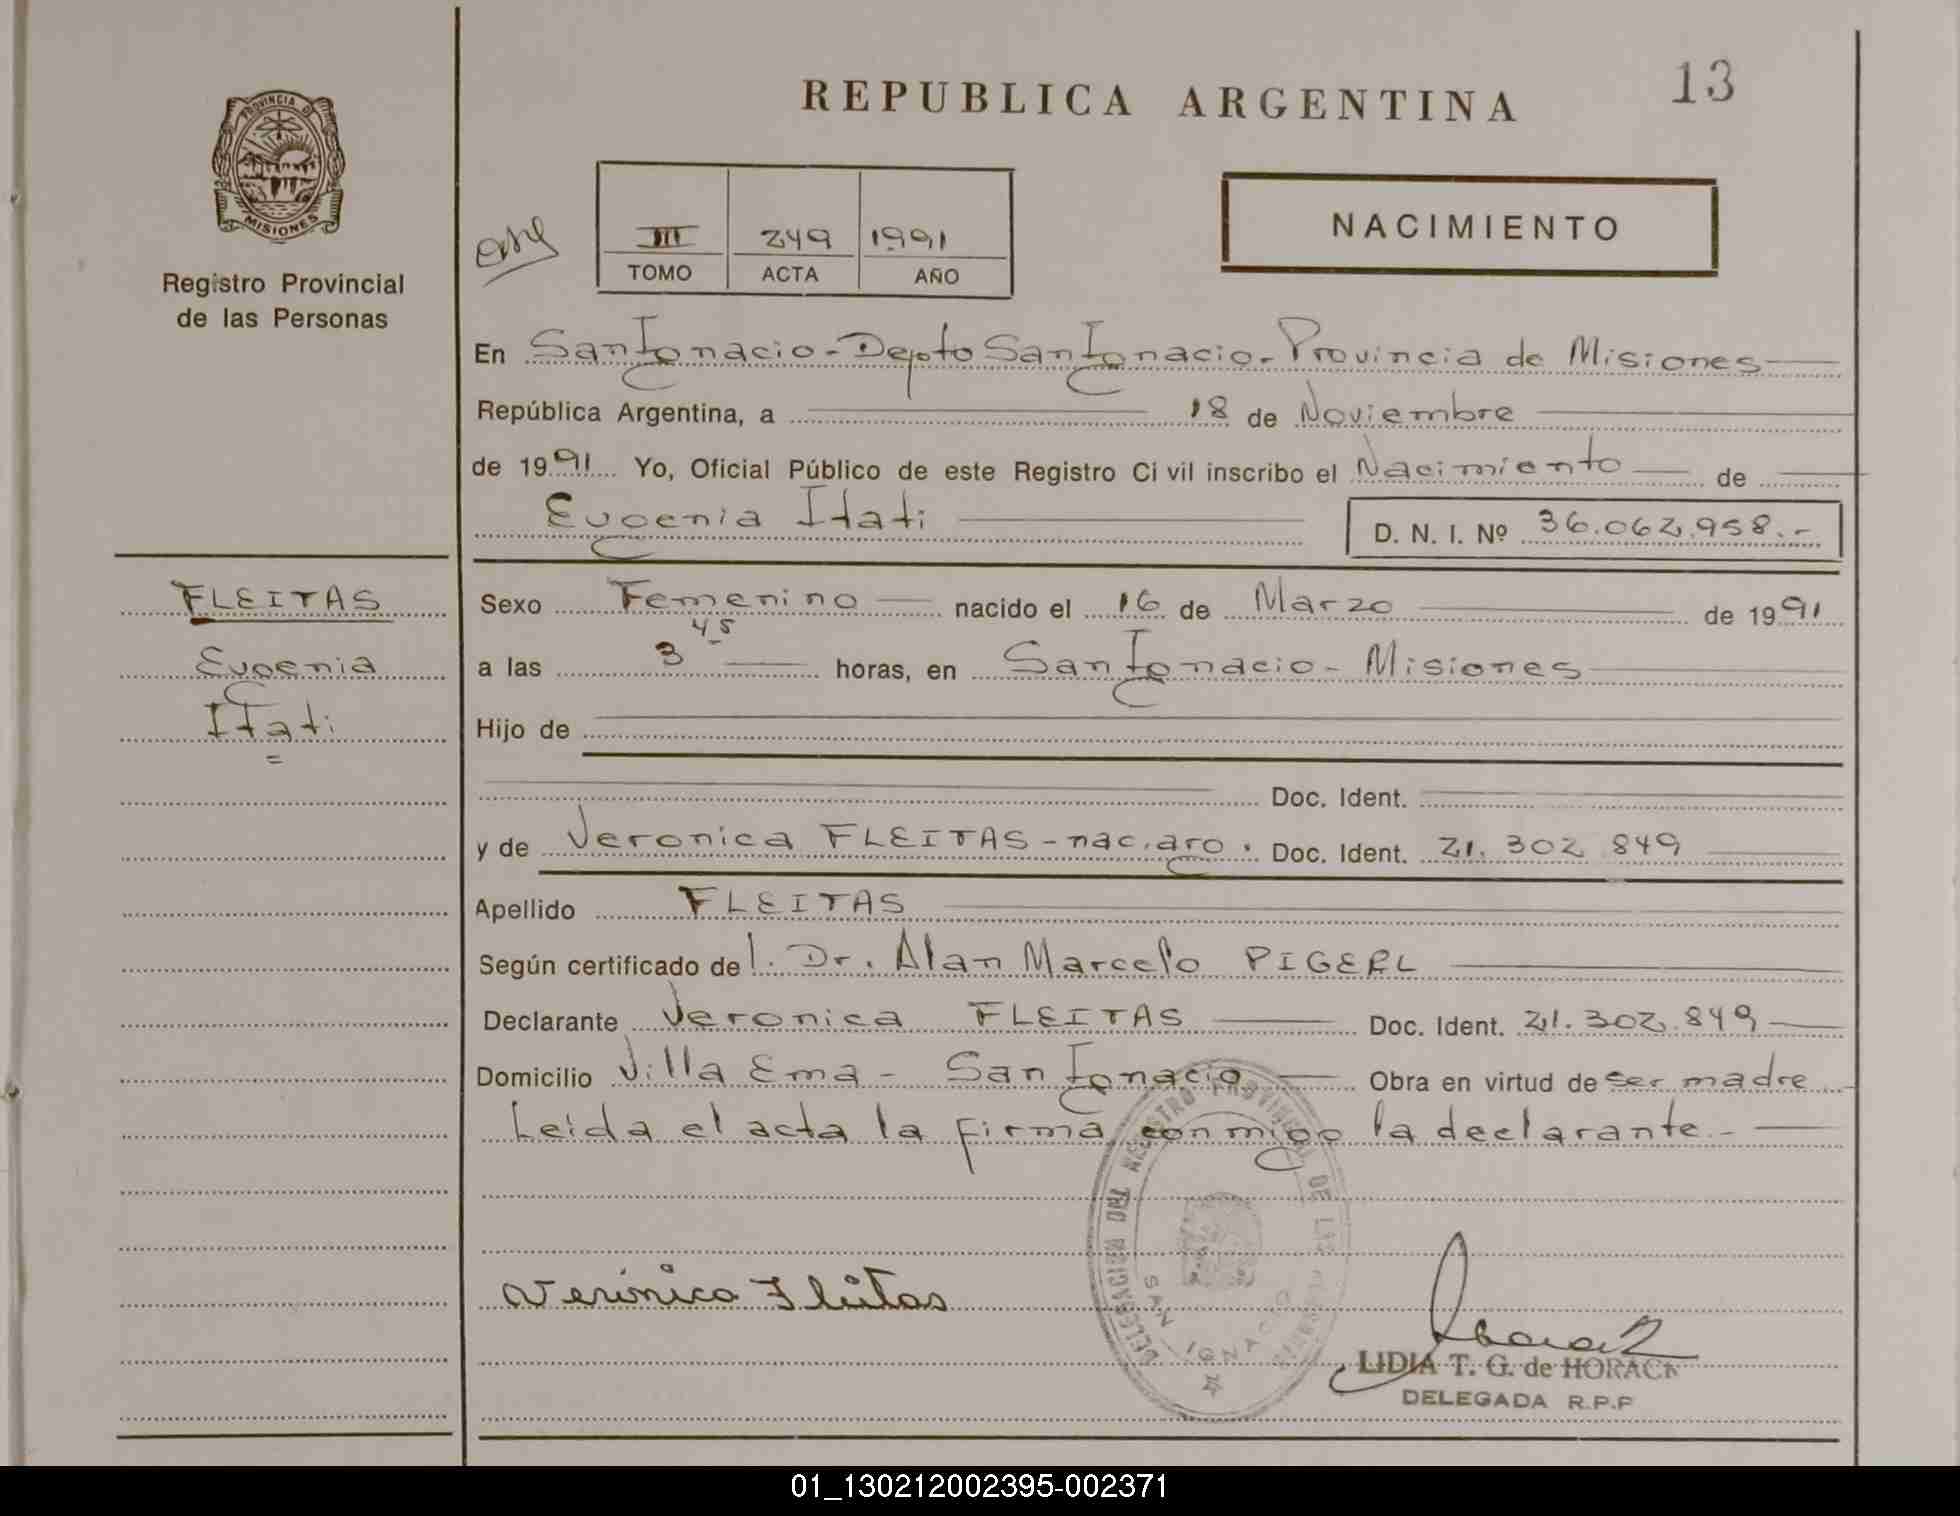 REPUBLICA ARGENTINA
13
PROVINCIA DE
MISIONES
Registro Provincial
de las Personas
III 249 1991
TOMO ACTA AÑO
NACIMIENTO
En San Ignacio - Depto San Ignacio - Provincia de Misiones
República Argentina, a 18 de Noviembre
de 1991 Yo, Oficial Público de este Registro Civil inscribo el Nacimiento de
Eugenia Itati D. N. I. Nº 36.062.958.-
FLEITAS
Eugenia
Itati
Sexo Femenino nacido el 16 de Marzo de 1991
a las 3 45 horas, en San Ignacio - Misiones
Hijo de
Doc. Ident.
y de Veronica FLEITAS - nac. arg. Doc. Ident. 21.302.849
Apellido FLEITAS
Según certificado del. Dr. Alan Marcelo PIGERL
Declarante Veronica FLEITAS Doc. Ident. 21.302.849
Domicilio Villa Ema - San Ignacio Obra en virtud de ser madre
Leida el acta la firma conmigo la declarante.-
DELEGACION DEL REGISTRO PROVINCIAL DE LAS PERSONAS
SAN IGNACIO
Verónica Fleitas
LIDIA T. G. de HORACK
DELEGADA R.P.P
01_130212002395-002371